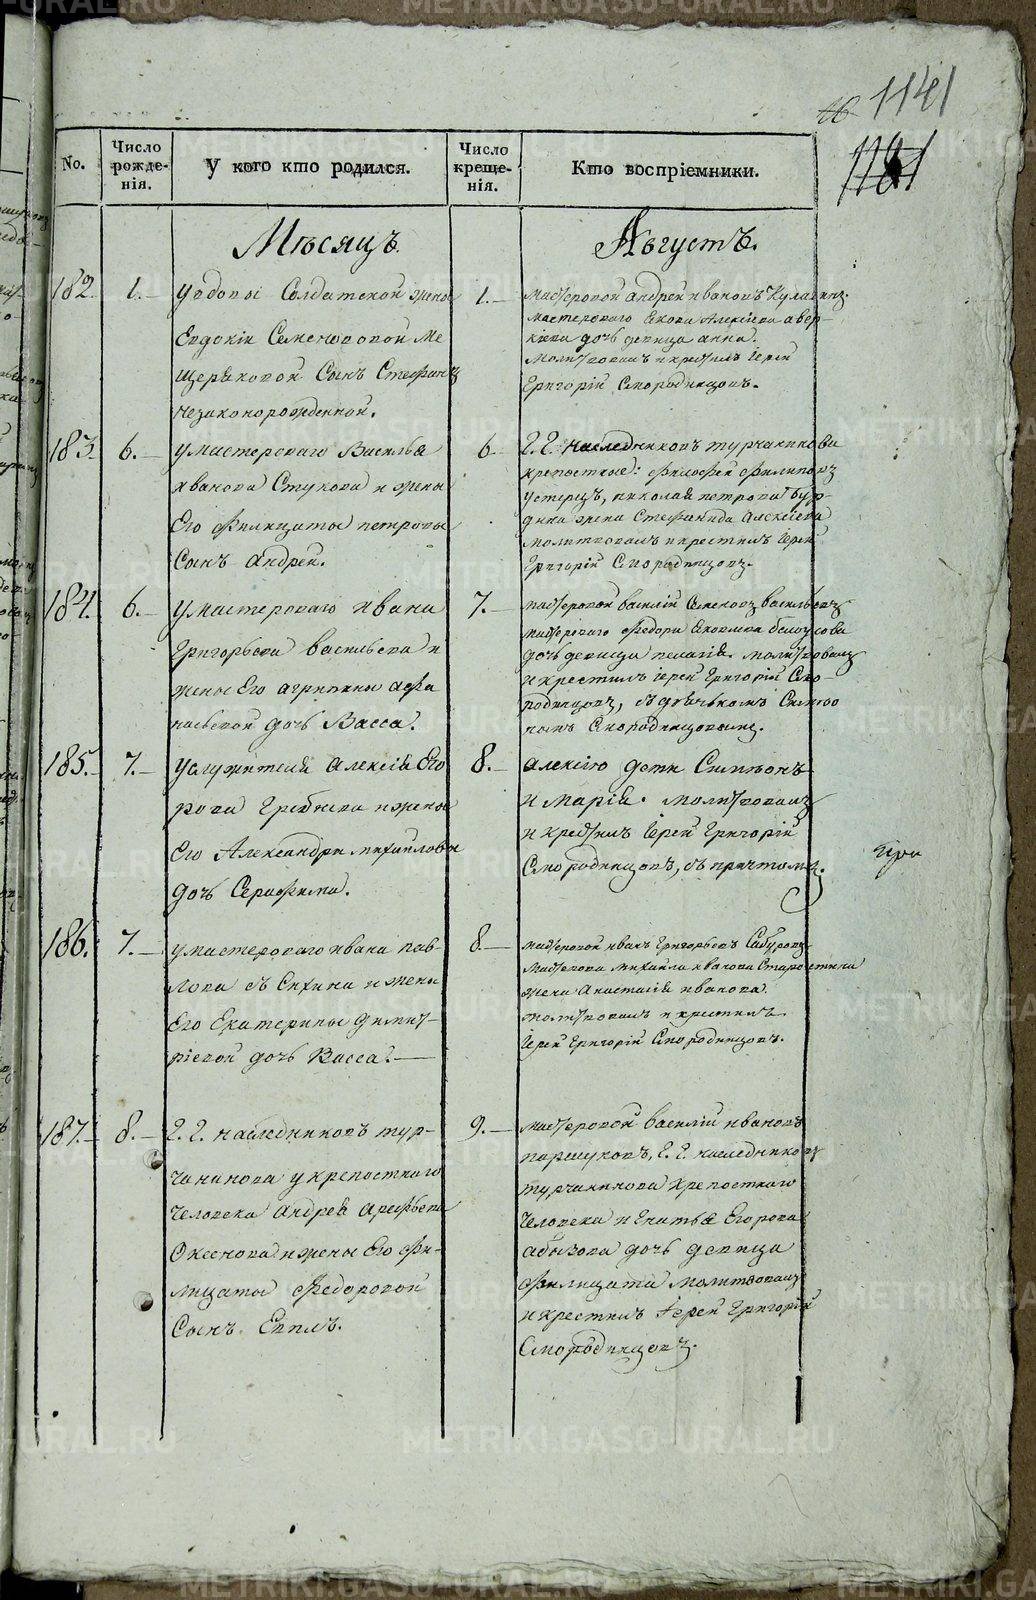 1141
No.
Число рожденія.
У кого кто родился.
Число крещенія.
Кто воспріемники.
Мѣсяцъ
Августъ.
182.
1.
У вдовы Солдатской жены
Евдокіи Семеновой Ме
щеряковой Сынъ Стефанъ
незаконорожденной.
1.
мастеровой андрей ивановъ
мастероваго Якова Алексіева авер-
кіева дочь девица анна.
Молитвовалъ и крестилъ Іерей
Григорій Смородинцовъ.
183.
6.
У мастероваго Василья
иванова Стукова и жены
Его Филицаты петровы
Сынъ андрей.
6
Г. Г. наследниковъ турчанинова
крепостные: Филиповъ
николая петрова
жена Стефанида Алексіева
молитвовалъ и крестилъ Іерей
Григорій Смородинцовъ.
184.
6.
У мастероваго ивана
Григорьева васильева и
жены Его агрипины афа
насьевой дочь Васса.
7.
мастеровой василій Семеновъ васильевъ
мастероваго Федора Яковлева белоусова
дочь девица пелагія. молитвовалъ
и крестилъ іерей Григорій Смо-
родинцовъ, съ дьячькомъ Симео
номъ Смородинцовымъ.
185.
7.
Услужителя Алексія Его
рова Гребнева и жены
Его Александры михайловы
дочь Серафима.
8.
алексію дети Симеонъ
и марія. молитвовалъ
и крестилъ Іерей Григорій
Смородинцовъ, съ причтомъ.
186.
7.
у мастероваго ивана пав-
лова и жены
Его Екатерины димит-
ріевой дочь Васса.
8.
мастеровой иванъ Григорьевъ Сабуровъ
мастерова михайла иванова Старостина
жена Анастасія иванова.
молитвовалъ и крестилъ
Іерей Григорій Смородинцовъ.
187.
8.
Г. Г. наследниковъ тур-
чанинова у крепостнаго
человека андрея арефьева
и жены Его Фи-
лицаты Федоровой
Сынъ Евплъ.
9.
мастеровой василій ивановъ
паршуковъ, Г. Г. наследниковъ
турчанинова крепостнаго
человека игнатья Егорова
абызова дочь девица
Филицата молитвовалъ
и крестилъ Іерей Григорій
Смородинцовъ.
METRIKI.GASO-URAL.RU